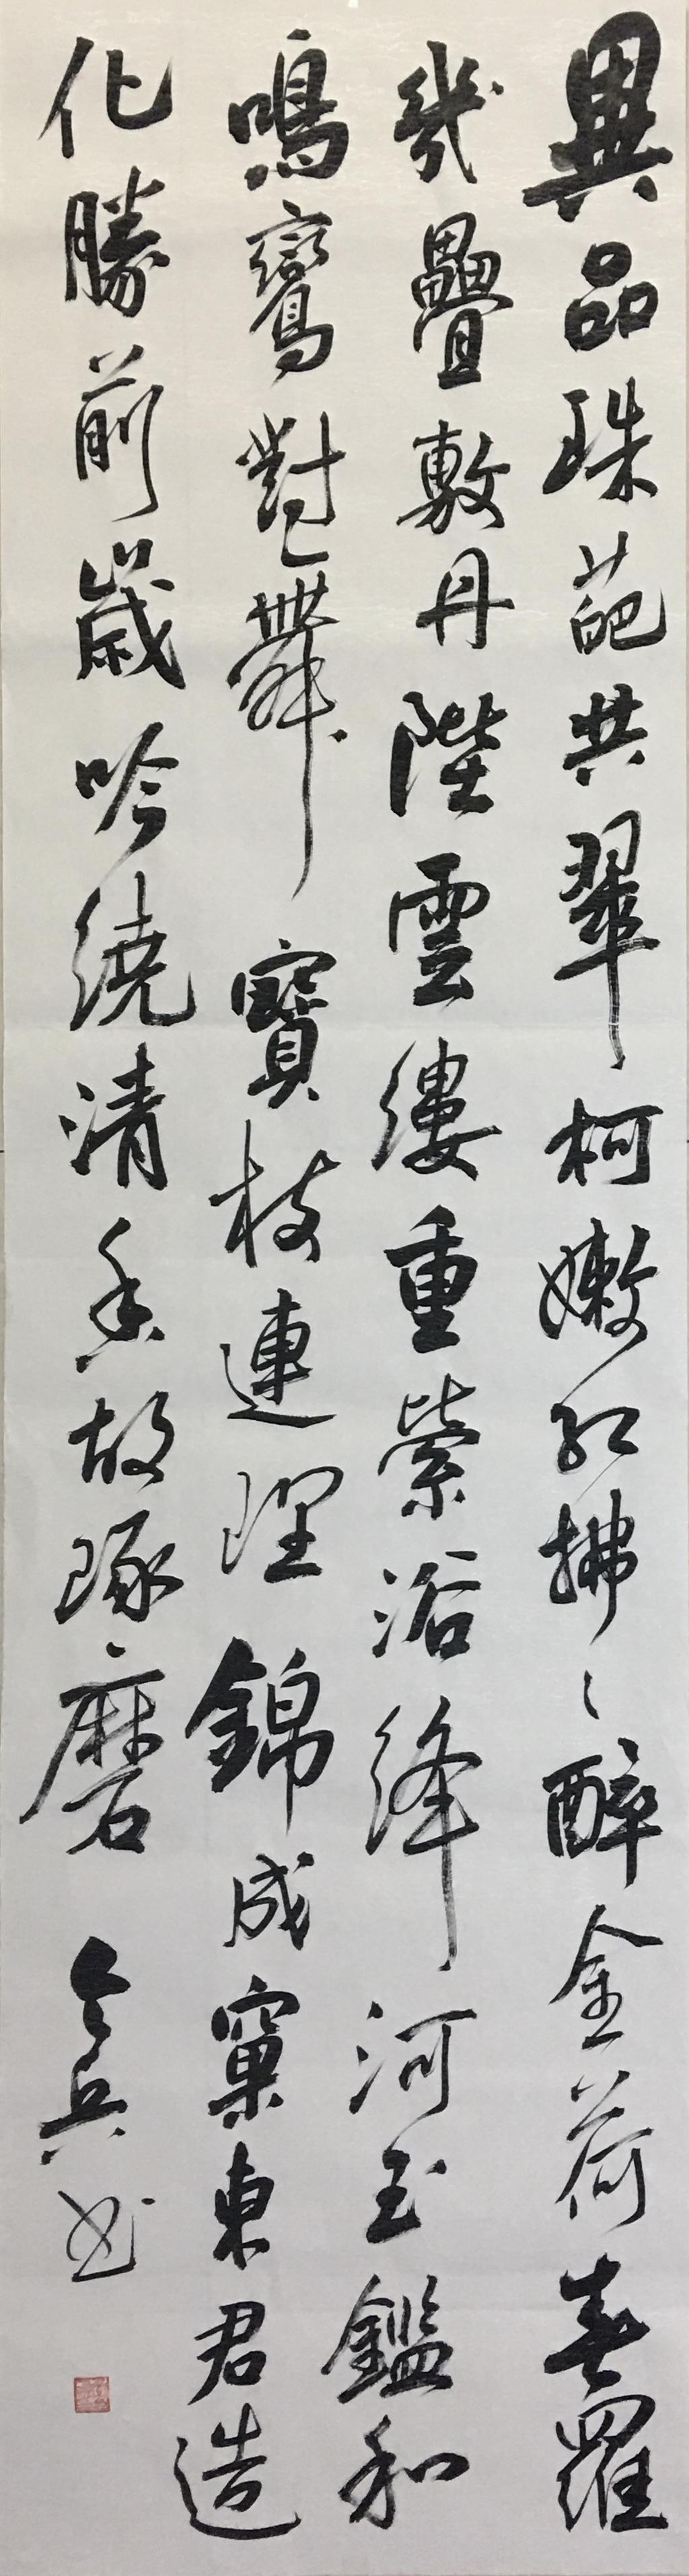 異品殊葩共翠柯嫩紅拂〻醉金荷春羅
幾疊敷丹陛雲縷重縈浴絳河玉鑑和
鳴鸞對舞寶枝連理錦成窠東君造
化勝前歲吟繞清香故琢磨
兵书